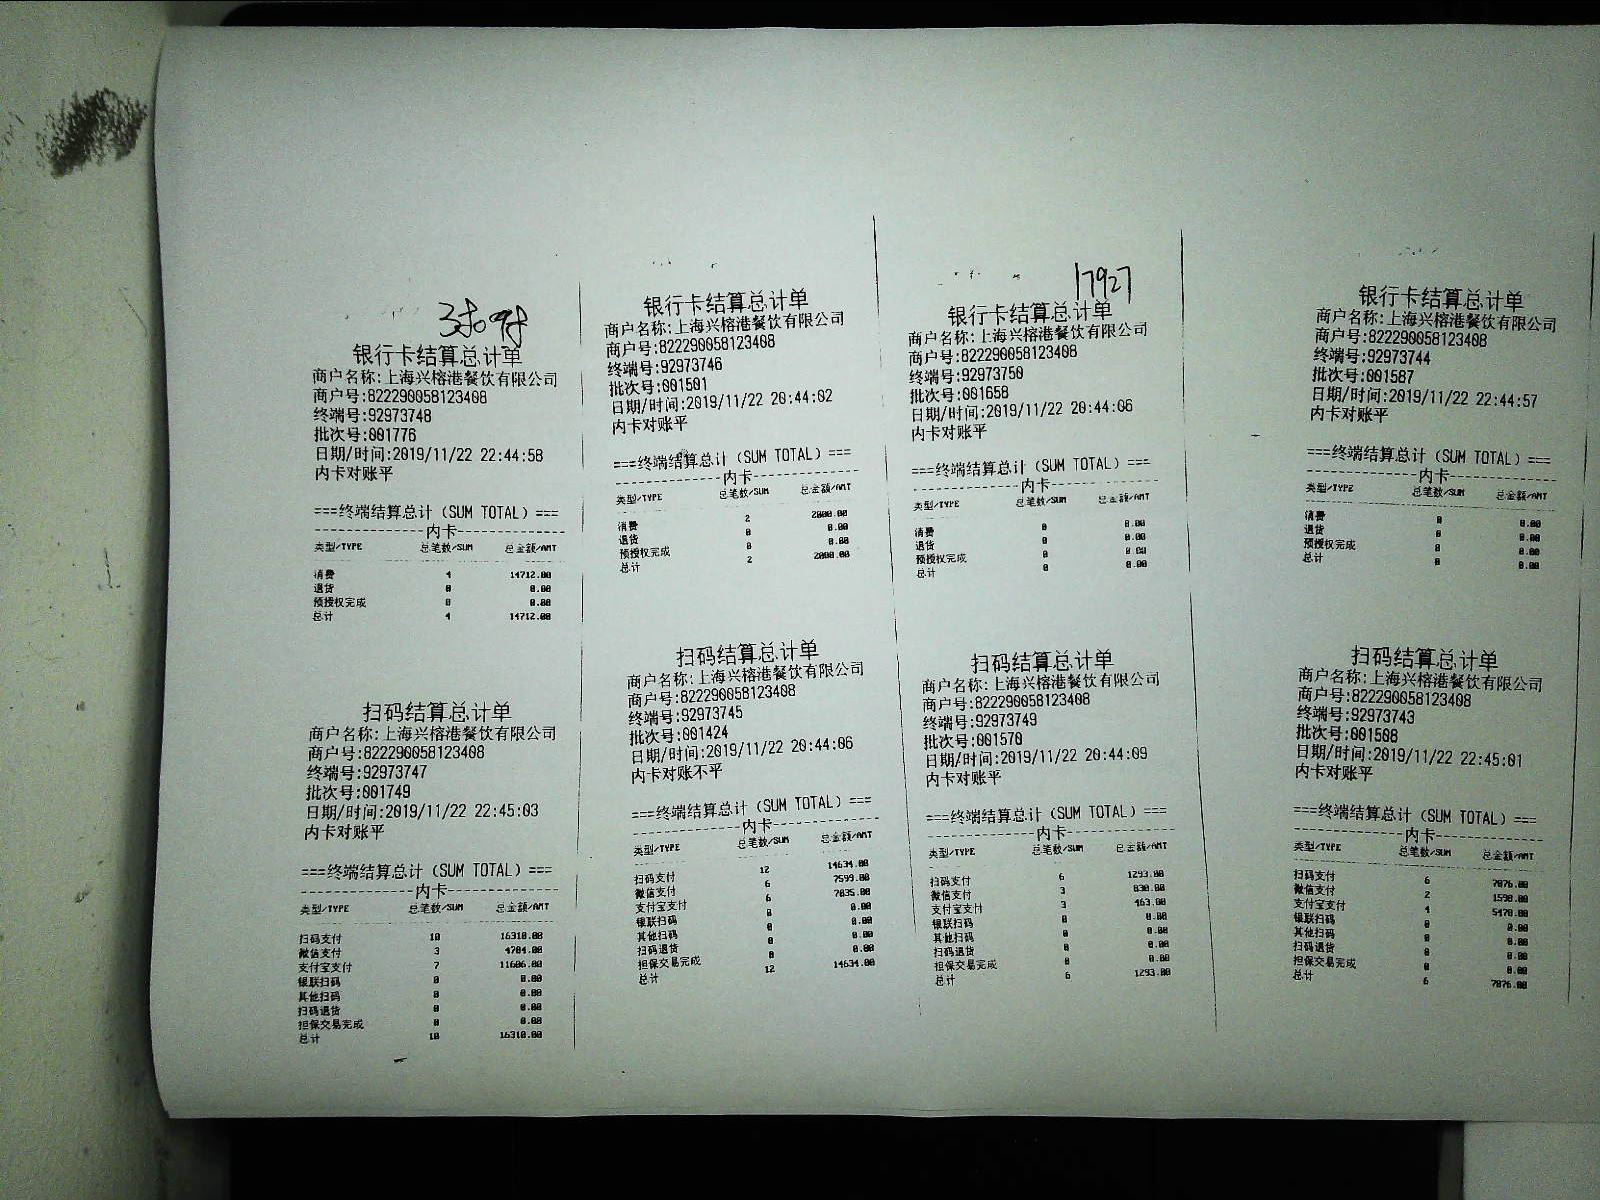 银行卡结算总计单
商户名称:上海兴榕港餐饮有限公司
商户号:822290058123408
终端号:92973748
批次号:001776
日期/时间:2019/11/22 22:44:58
内卡对账平
===终端结算总计(SUM TOTAL)===
内卡
类型/TYPE 总笔数/SUM 总金额/AMT
消费 4 14712.00
退货 0 0.00
预授权完成 0 0.00
总计 4 14712.00
扫码结算总计单
商户名称:上海兴榕港餐饮有限公司
商户号:822290058123408
终端号:92973747
批次号:001749
日期/时间:2019/11/22 22:45:03
内卡对账平
===终端结算总计(SUM TOTAL)===
内卡
类型/TYPE 总笔数/SUM 总金额/AMT
扫码支付 10 16310.00
微信支付 3 4704.00
支付宝支付 7 11606.00
银联扫码 0 0.00
其他扫码 0 0.00
扫码退货 0 0.00
担保交易完成 0 0.00
总计 10 16310.00
银行卡结算总计单
商户名称:上海兴榕港餐饮有限公司
商户号:822290058123408
终端号:92973746
批次号:001501
日期/时间:2019/11/22 20:44:02
内卡对账平
===终端结算总计(SUM TOTAL)===
内卡
类型/TYPE 总笔数/SUM 总金额/AMT
消费 2 2000.00
退货 0 0.00
预授权完成 0 0.00
总计 2 2000.00
扫码结算总计单
商户名称:上海兴榕港餐饮有限公司
商户号:822290058123408
终端号:92973745
批次号:001424
日期/时间:2019/11/22 20:44:06
内卡对账不平
===终端结算总计(SUM TOTAL)===
内卡
类型/TYPE 总笔数/SUM 总金额/AMT
扫码支付 12 14634.00
微信支付 6 7599.00
支付宝支付 6 7035.00
银联扫码 0 0.00
其他扫码 0 0.00
扫码退货 0 0.00
担保交易完成 0 0.00
总计 12 14634.00
17927
银行卡结算总计单
商户名称:上海兴榕港餐饮有限公司
商户号:822290058123408
终端号:92973750
批次号:001658
日期/时间:2019/11/22 20:44:06
内卡对账平
===终端结算总计(SUM TOTAL)===
内卡
类型/TYPE 总笔数/SUM 总金额/AMT
消费 0 0.00
退货 0 0.00
预授权完成 0 0.00
总计 0 0.00
扫码结算总计单
商户名称:上海兴榕港餐饮有限公司
商户号:822290058123408
终端号:92973749
批次号:001570
日期/时间:2019/11/22 20:44:09
内卡对账平
===终端结算总计(SUM TOTAL)===
内卡
类型/TYPE 总笔数/SUM 总金额/AMT
扫码支付 6 1293.00
微信支付 3 830.00
支付宝支付 3 463.00
银联扫码 0 0.00
其他扫码 0 0.00
扫码退货 0 0.00
担保交易完成 0 0.00
总计 6 1293.00
银行卡结算总计单
商户名称:上海兴榕港餐饮有限公司
商户号:822290058123408
终端号:92973744
批次号:001587
日期/时间:2019/11/22 22:44:57
内卡对账平
===终端结算总计(SUM TOTAL)===
内卡
类型/TYPE 总笔数/SUM 总金额/AMT
消费 0 0.00
退货 0 0.00
预授权完成 0 0.00
总计 0 0.00
扫码结算总计单
商户名称:上海兴榕港餐饮有限公司
商户号:822290058123408
终端号:92973743
批次号:001508
日期/时间:2019/11/22 22:45:01
内卡对账平
===终端结算总计(SUM TOTAL)===
内卡
类型/TYPE 总笔数/SUM 总金额/AMT
扫码支付 6 7076.00
微信支付 2 1598.00
支付宝支付 4 5478.00
银联扫码 0 0.00
其他扫码 0 0.00
扫码退货 0 0.00
担保交易完成 0 0.00
总计 6 7076.00